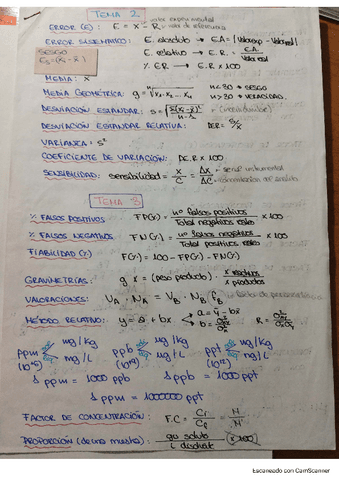 TEMA 2
ERROR (E): E = X - R
valor experimental
valor de referencia
ERROR SISTEMÁTICO: E. absoluto → E.A. = |Valor exp - Valor real|
SESGO
E. relativo → E.R. = E.A. / Valor real
% ER → E.R x 100
MEDIA: x̄
MEDIA GEOMÉTRICA: g = ⁿ√x₁·x₂·...·xₙ
n < 30 → SESGO
n > 30 → VERACIDAD.
DESVIACIÓN ESTANDAR: s = √(Σ(xᵢ-x̄)² / n-1) → (incertidumbre)
DESVIACIÓN ESTANDAR RELATIVA: DER = s/x̄
VARIANZA = s²
COEFICIENTE DE VARIACIÓN: DER x 100
SENSIBILIDAD: sensibilidad = x/C = Δx/ΔC → señal instrumental
→ concentración del analito
TEMA 3
% FALSOS POSITIVOS FP(%) = nº falsos positivos / Total negativos reales x 100
% FALSOS NEGATIVOS FN(%) = nº falsos negativos / Total positivos reales x 100
FIABILIDAD (%) F(%) = 100 - FP(%) - FN(%)
GRAVIMETRÍAS: g x = (peso producto) · x reactivos / x productos
VALORACIONES: V_A · N_A = V_B · N_B · f_B
MÉTODO RELATIVO: y = a + bx
a = ȳ - bx̄
ppm mg/kg mg/L (10⁻⁶)
ppb mg/L (10⁻⁹)
ppt (10⁻¹²)
1 ppm = 1000 ppb 1 ppb = 1000 ppt
1 ppm = 1000000 ppt
FACTOR DE CONCENTRACIÓN: F.C =
PROPORCIÓN (de una muestra): x 100
Escaneado con CamScanner